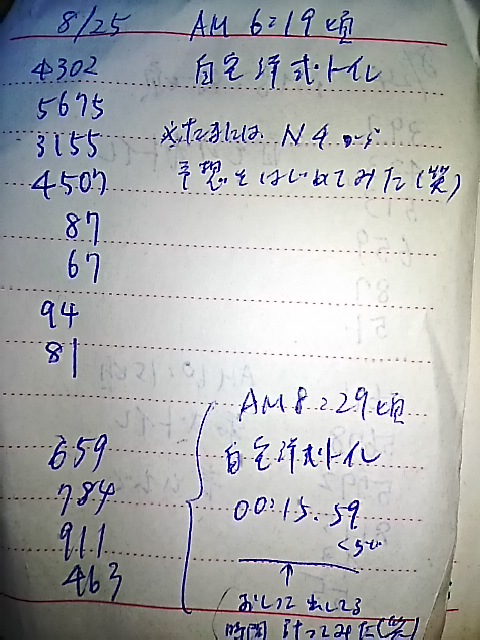 8/25 AM 6:19頃
4302 自宅洋式トイレ
5675
3155 ※たまには N4から
4507 予想をはじめてみた(笑)
87
67
94
81
AM8:29頃
659 自宅洋式トイレ
784 00:15.59
911
463
おしっこ出してる
時間 計ってみた(笑)